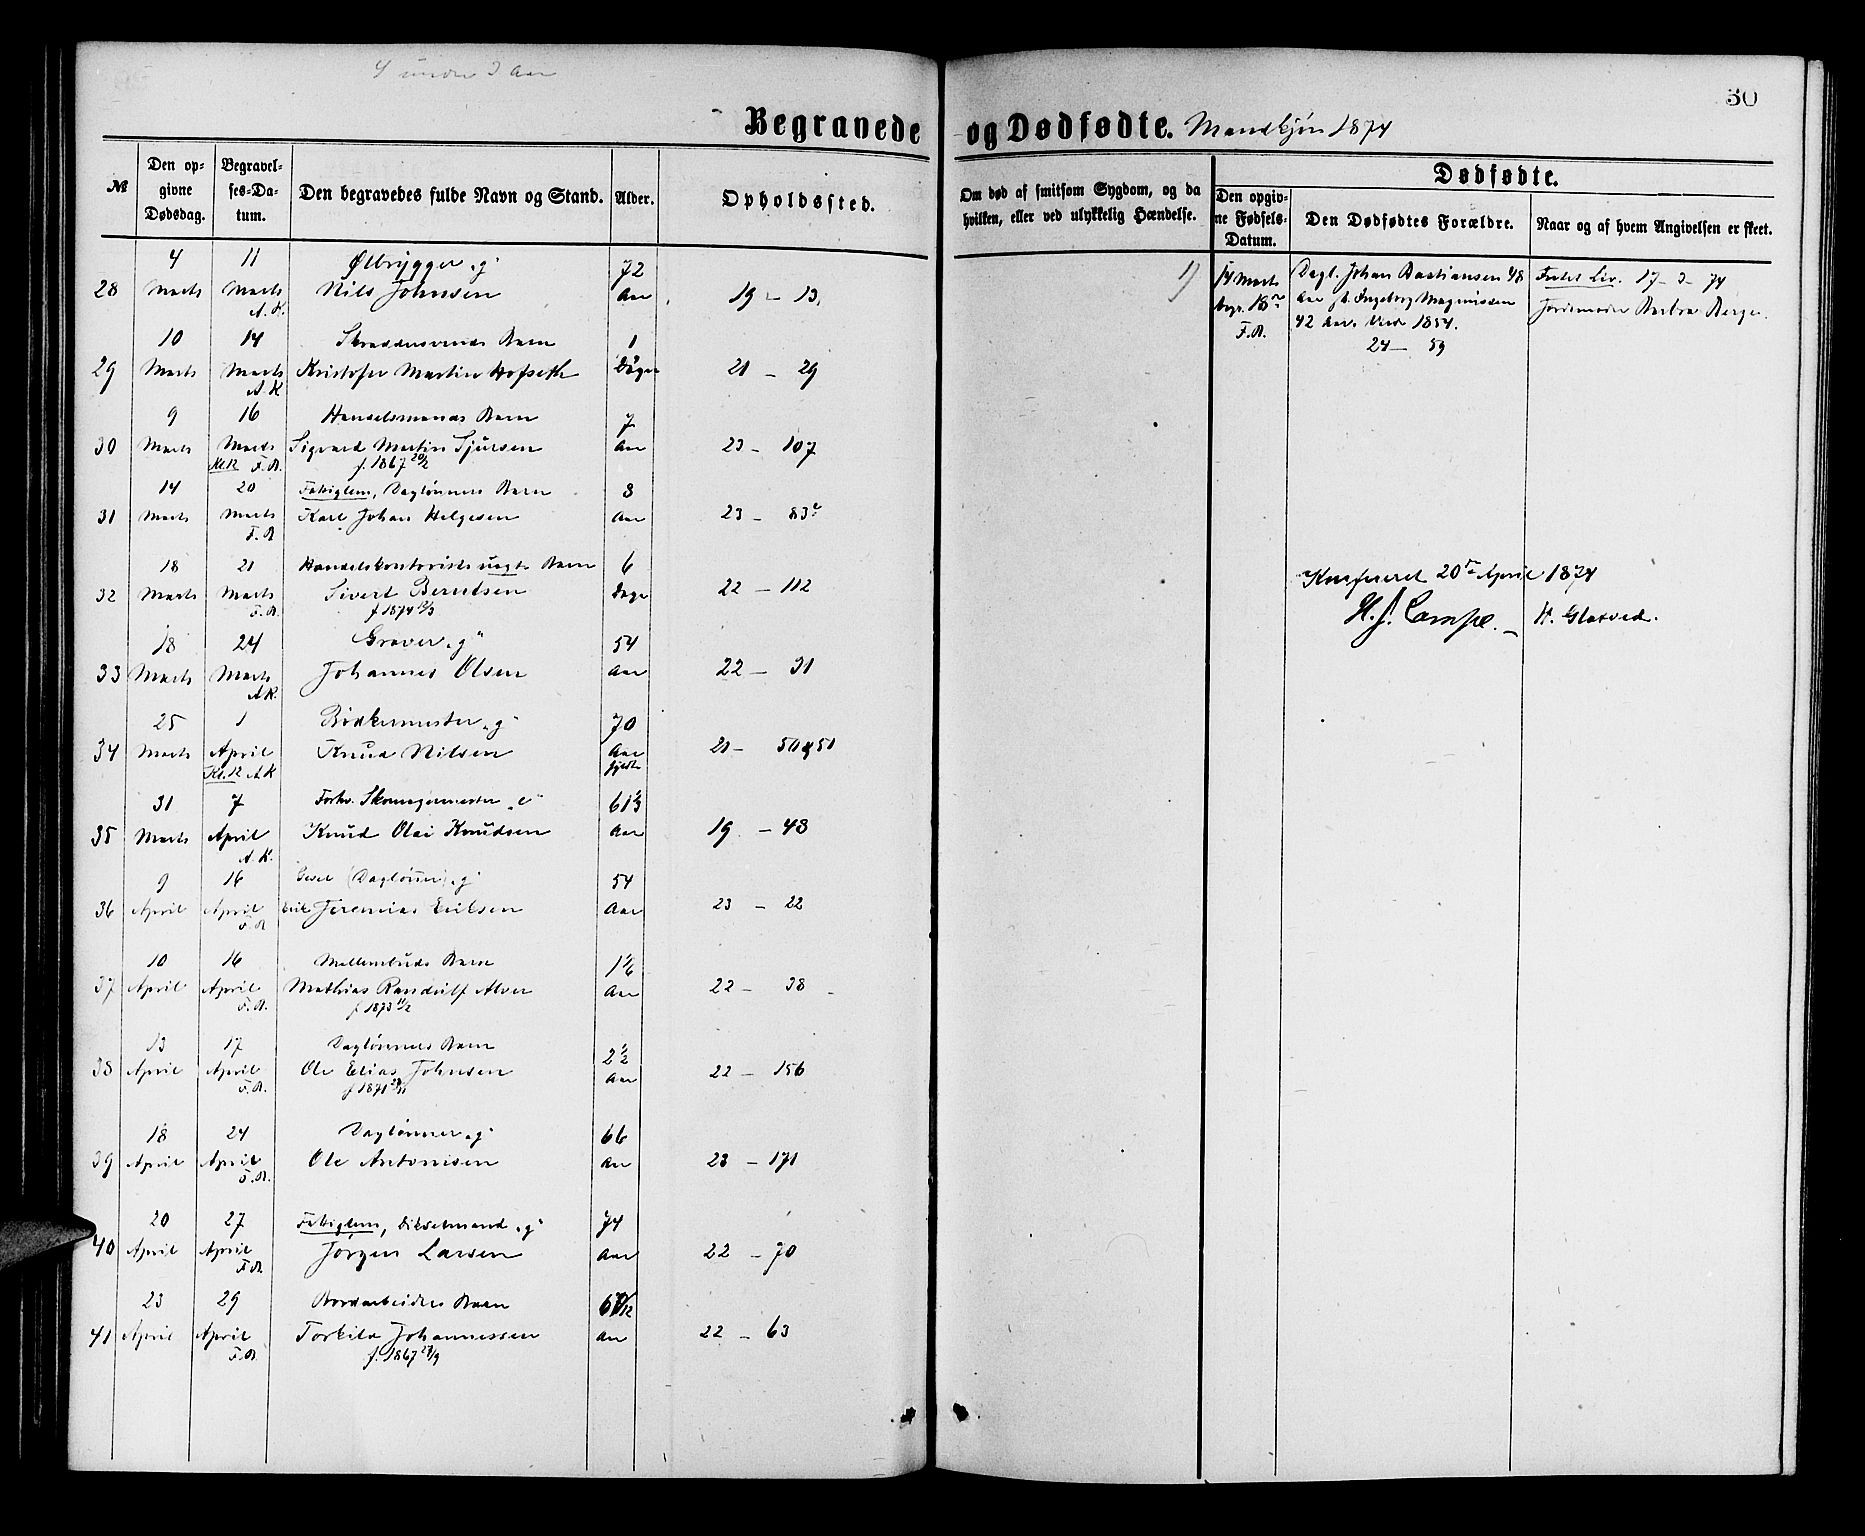 4 under 3 Aar
30
Begravede og Dødfødte. Mandkjøn 1874
№
Den opgivne Dødsdag.
Begravelses-Datum.
Den begravedes fulde Navn og Stand.
Alder.
Opholdssted.
Om død af smitsom Sygdom, og da hvilken, eller ved ulykkelig Hændelse.
Dødfødte.
Den opgivne Fødsels-Datum.
Den Dødfødtes Forældre.
Naar og af hvem Angivelsen er skeet.
4 11 Ølbrygger „g“ 72
28 Marts Marts Nils Johnsen Aar 19 – 13.
A.K.
10 14 Skræddersvends Barn 1
29 Marts Marts Kristofer Martin Hofseth Døgn 21 – 29
A.K
9 16 Handelsmands Barn 7
30 Marts Marts Sigvard Martin Sjursen Aar 23 – 107
Kl.K F.B. f. 1867 20/2
14 20 Fattiglem, Dagløners Barn 8
31 Marts Marts Karl Johan Helgesen Aar 23 – 83
F.B
18 21 Handelskontorists uægte Barn 6
32 Marts Marts Sivert Berntsen Dage 22 – 112
F.B. f 1874
18 24 Graver „g“ 54
33 Marts Marts Johannes Olsen Aar 22 – 31
A.K.
25 1 Bødkermester „g“ 70
34 Marts April Knud Nilsen Aar 21 – 50 & 51
Kl.K A.K fyldt
31 7 Forhv. Skomagermester „e“ 61 1/3
35 Marts April Knud Olai Knudsen Aar 19 – 48
A.K.
9 16 (Dagløner) „g“ 54
36 April April Erik Jeremias Eriksen Aar 23 – 22
F.B
10 16 Møllersvends Barn 1 1/6
37 April April Mathias Randulf Alver Aar 22 – 38
F.B. f 1873 11/2
13 17 Dagløners Barn 2 1/2
38 April April Ole Elias Johnsen Aar 22 – 156
F.B. f 1871
18 24 Dagløner „g“ 66
39 April April Ole Antonisen Aar 23 – 171
F.B.
20 27 Fattiglem, „g“ 74
40 April April Jørgen Larsen Aar 22 – 70
F.B.
23 29 Jordarbeiders Barn 6
41 April April Torkild Johannessen Aar 22 – 63
F.B. f. 1867
1) 14 Marts Dagl. Johan Bastiansen 48 Fadet Liv. 17 – 3 – 74
begr. 18de Aar Ingeborg Magnusdn Jordemoder Barbra Berge.
F.B. 42 Aar. Viede 1854.
24 – 59
Konfereret 20de April 1874
H. J. Campe. – H. Glatved.